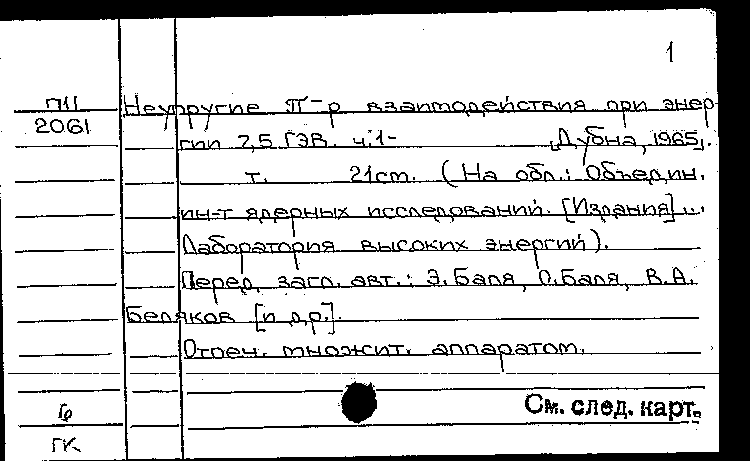 1
П11
2061
Неупругие π⁻р взаимодействия при энер-
гии 7,5 ГЭВ. ч.1-
[Дубна, 1965].
т. 21см. (На обл.: Объедин.
ин-т ядерных исследований. [Издания]...
Лаборатория высоких энергий).
Перед загл. авт.: Э. Баля, О. Баля, В.А.
Беляков [и др.].
Отпеч. множит. аппаратом.
См. след. карт.
ГК